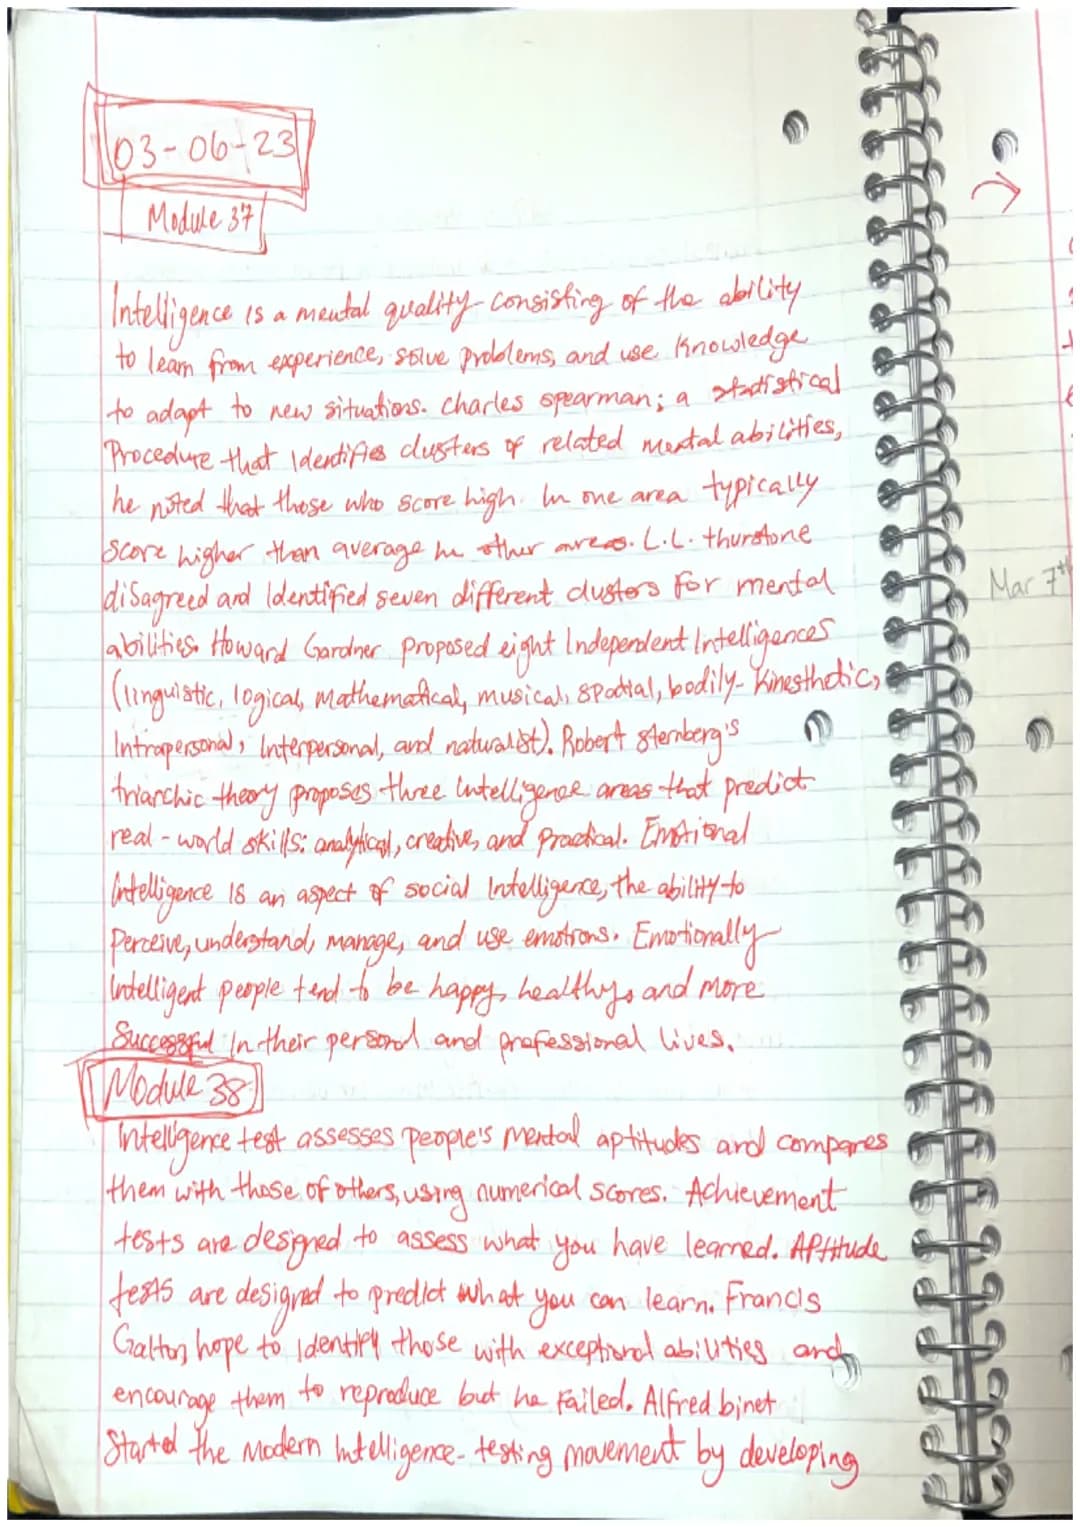 03-06-23
Module 37
Intelligence is a mental quality consisting of the ability
to learn from experience, solve problems, and use knowledge
to adapt to new situations. Charles spearman; a statistical
Procedure that Identifies clusters of related mental abilities,
he noted that those who score high. In one area typically
Score higher than average in other areas. L.L. thurstone
disagreed and Identified seven different clusters for mental
abilities. Howard Gardner proposed eight Independent Intelligences
(linguistic, logical, mathematical, musical, spatial, bodily-kinesthetic,
Intrapersonal, Interpersonal, and naturalist). Robert sternberg's
triarchic theory proposes three intelligence areas that predict
real-world skills: analytical, creative, and practical. Emotional
Intelligence is an aspect of social Intelligence, the ability to
Perceive, understand, manage, and use emotions. Emotionally
Intelligent people tend to be happy, healthy, and more
Successful In their personal and professional lives.
Module 38
Intelligence test assesses people's mental aptitudes and compares
them with those of others, using numerical scores. Achievement
tests are designed to assess what you have learned. Aptitude
tests are designed to predict what you can learn. Francis
Galton, hope to Identify those with exceptional abilities and
encourage them to reproduce but he failed. Alfred binet
Started the Modern Intelligence-testing movement by developing
Mar 7th